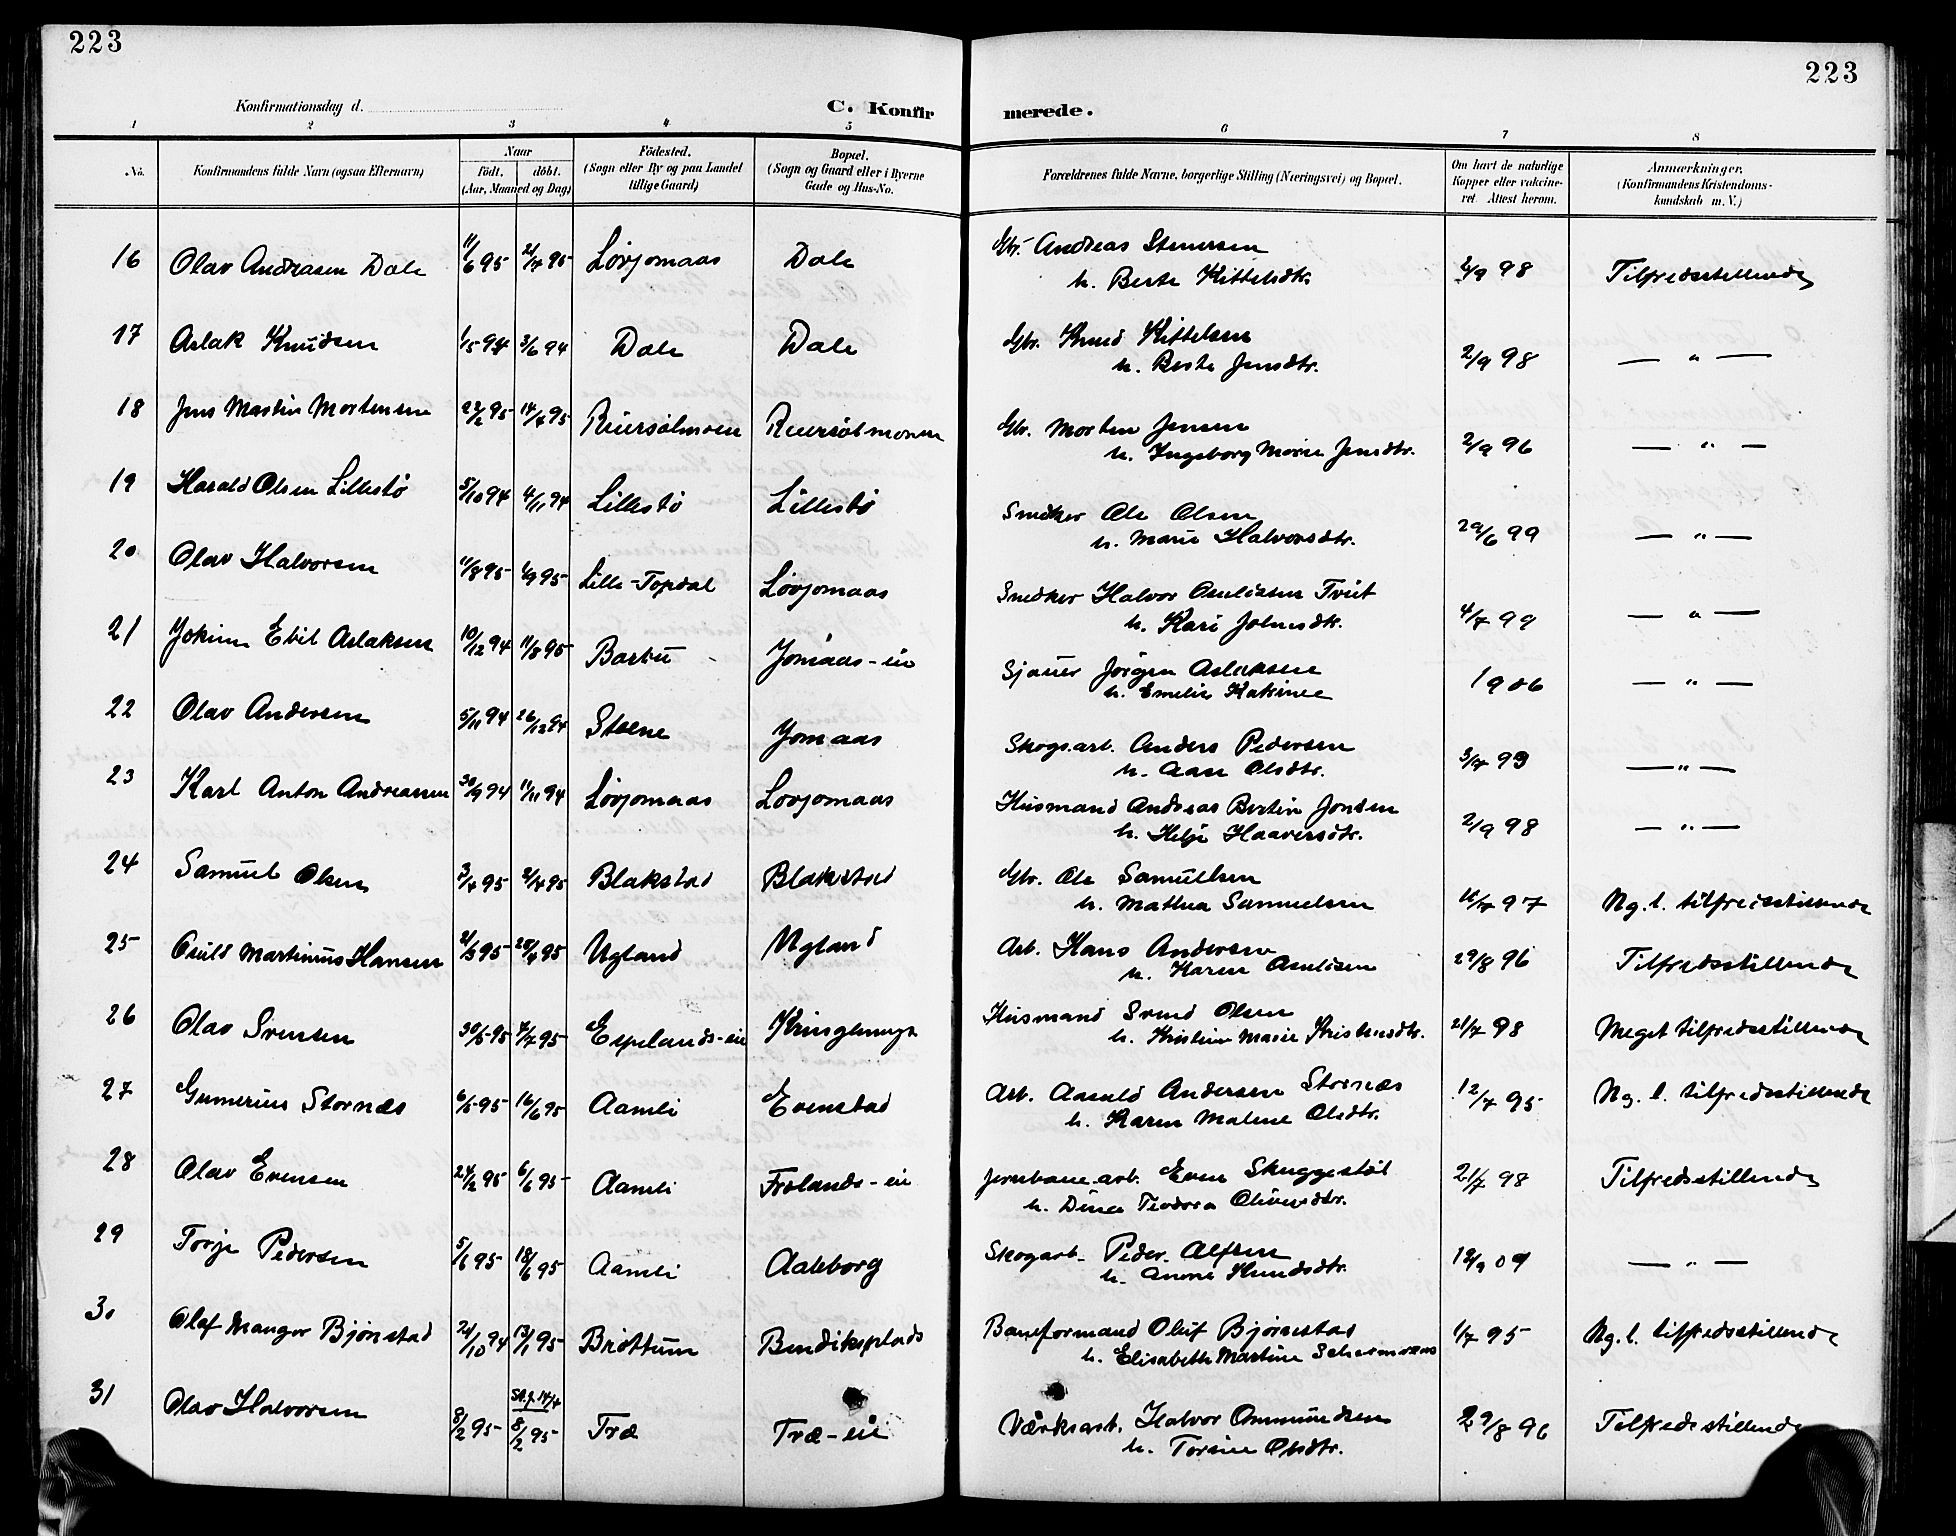 223
223
Konfirmationsdag d.
C. Konfirmerede.
1 2 3 4 5 6 7 8
No. Konfirmandens fulde Navn (ogsaa Efternavn) Naar født, døbt. (Aar, Maaned og Dag) Fødested. (Sogn eller By og paa Landet tillige Gaard) Bopæl. (Sogn og Gaard eller i Byerne Gade og Hus-No. Forældrenes fulde Navne, borgerlige Stilling (Næringsvei) og Bopæl. Om havt de naturlige Kopper eller vaccineret. Attest herom. Anmærkninger. (Konfirmandens Kristendomskundskab m. V.)
16 Olav Andreasen Dale 11/6 95 21/7 95 Løvjomaas Dale Gbr. Andreas Stenersen 2/9 98 Tilfredsstillende
h. Berte Kittelsdtr.
17 Aslak Knudsen 1/5 94 3/6 94 Dale Dale Gbr. Knud Kittelsen 2/9 98 — " —
h. Berte Jensdtr.
18 Jens Martin Mortensen 22/2 95 14/4 95 Reiersølmoen Reiersølmonen Gbr. Morten Jensen 2/9 96 — " —
h. Ingeborg Marie Jensdtr.
19 Harald Olsen Lillestø 5/10 94 4/11 94 Lillestø Lillestø Snedker Ole Olsen 29/6 99 — " —
h. Marie Halvorsdtr.
20 Olav Halvorsen 11/8 95 1/9 95 Lille-Topdal Løvjomaas Snedker Halvor Aanlissen Tveit 4/7 99 — " —
h. Kari Johnsdtr.
21 Jokim Ebil Aslaksen 10/12 94 11/8 95 Barbu Jomaas-eie Sjauer Jørgen Aslaksen 1906 — " —
h. Emelie Katrine
22 Olav Andersen 5/11 94 26/12 94 Steene Jomaas Skogsarb. Anders Pedersen 3/7 99 — " —
h. Aase Olsdtr.
23 Karl Anton Andreassen 30/9 94 11/11 94 Løvjomaas Løvjomaas Husmand Andreas Bertin Jensen 2/9 98 — " —
h. Helje Haaversdtr.
24 Samuel Olsen 3/4 95 21/4 95 Blakstad Blakstad Gbr. Ole Samuelsen 16/7 97 Ng. l. tilfredsstillende
h. Mathea Samuelsen
25 Osuld Martinius Hansen 21/3 95 28/4 95 Ugland Ugland Arb. Hans Andersen 29/8 96 Tilfredsstillende
h. Karen Aanlisen
26 Olav Svensen 30/5 95 7/7 95 Espelands-eie Kringlemyr Husmand Svend Olsen 21/7 98 Meget tilfredsstillende
h. Kristine Marie Kristensdtr.
27 Gumerius Stornæs 6/5 95 16/6 95 Aamli Evenstad Arb. Aasuld Andersen Stornæs 12/7 95 Ng. l. tilfredsstillende
h. Karen Malene Olsdtr.
28 Olav Evensen 24/2 95 6/6 95 Aamli Frolands-eie Jernbane-arb. Even Skuggestøl 21/7 98 Tilfredsstillende
h. Dina Teodora Oliversdtr.
29 Torje Pedersen 5/1 95 18/6 95 Aamli Aaleborg Skogarb. Peder Alfsen 12/9 09 — " —
h. Anne Knudsdtr.
30 Olaf Mangor Bjørnstad 24/10 94 13/1 95 Brøttum Bendiksplads Baneformand Oluf Bjørnstad 1/7 95 Ng. l. tilfredsstillende
h. Elisabeth Martine
31 Olav Halvorsen 8/2 95 St. f. 14/4 8/2 95 Træ Træ-eie Værksarb. Halvor Ommundsen 29/8 96 Tilfredsstillende
h. Torine Olsdtr.